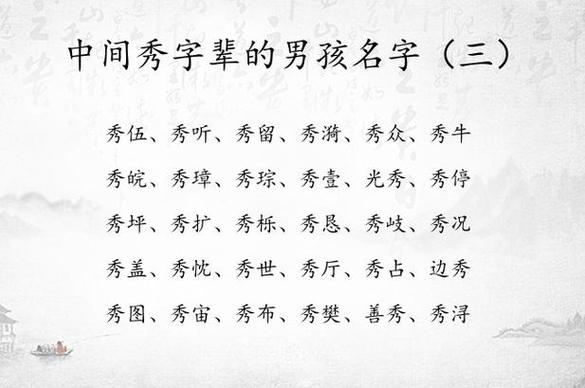 中间秀字辈的男孩名字（三）
秀伍、秀听、秀留、秀漪、秀众、秀牛
秀皖、秀璋、秀琮、秀壹、光秀、秀停
秀坪、秀扩、秀栎、秀恳、秀岐、秀况
秀盖、秀忱、秀世、秀厅、秀占、边秀
秀图、秀宙、秀布、秀樊、善秀、秀浔